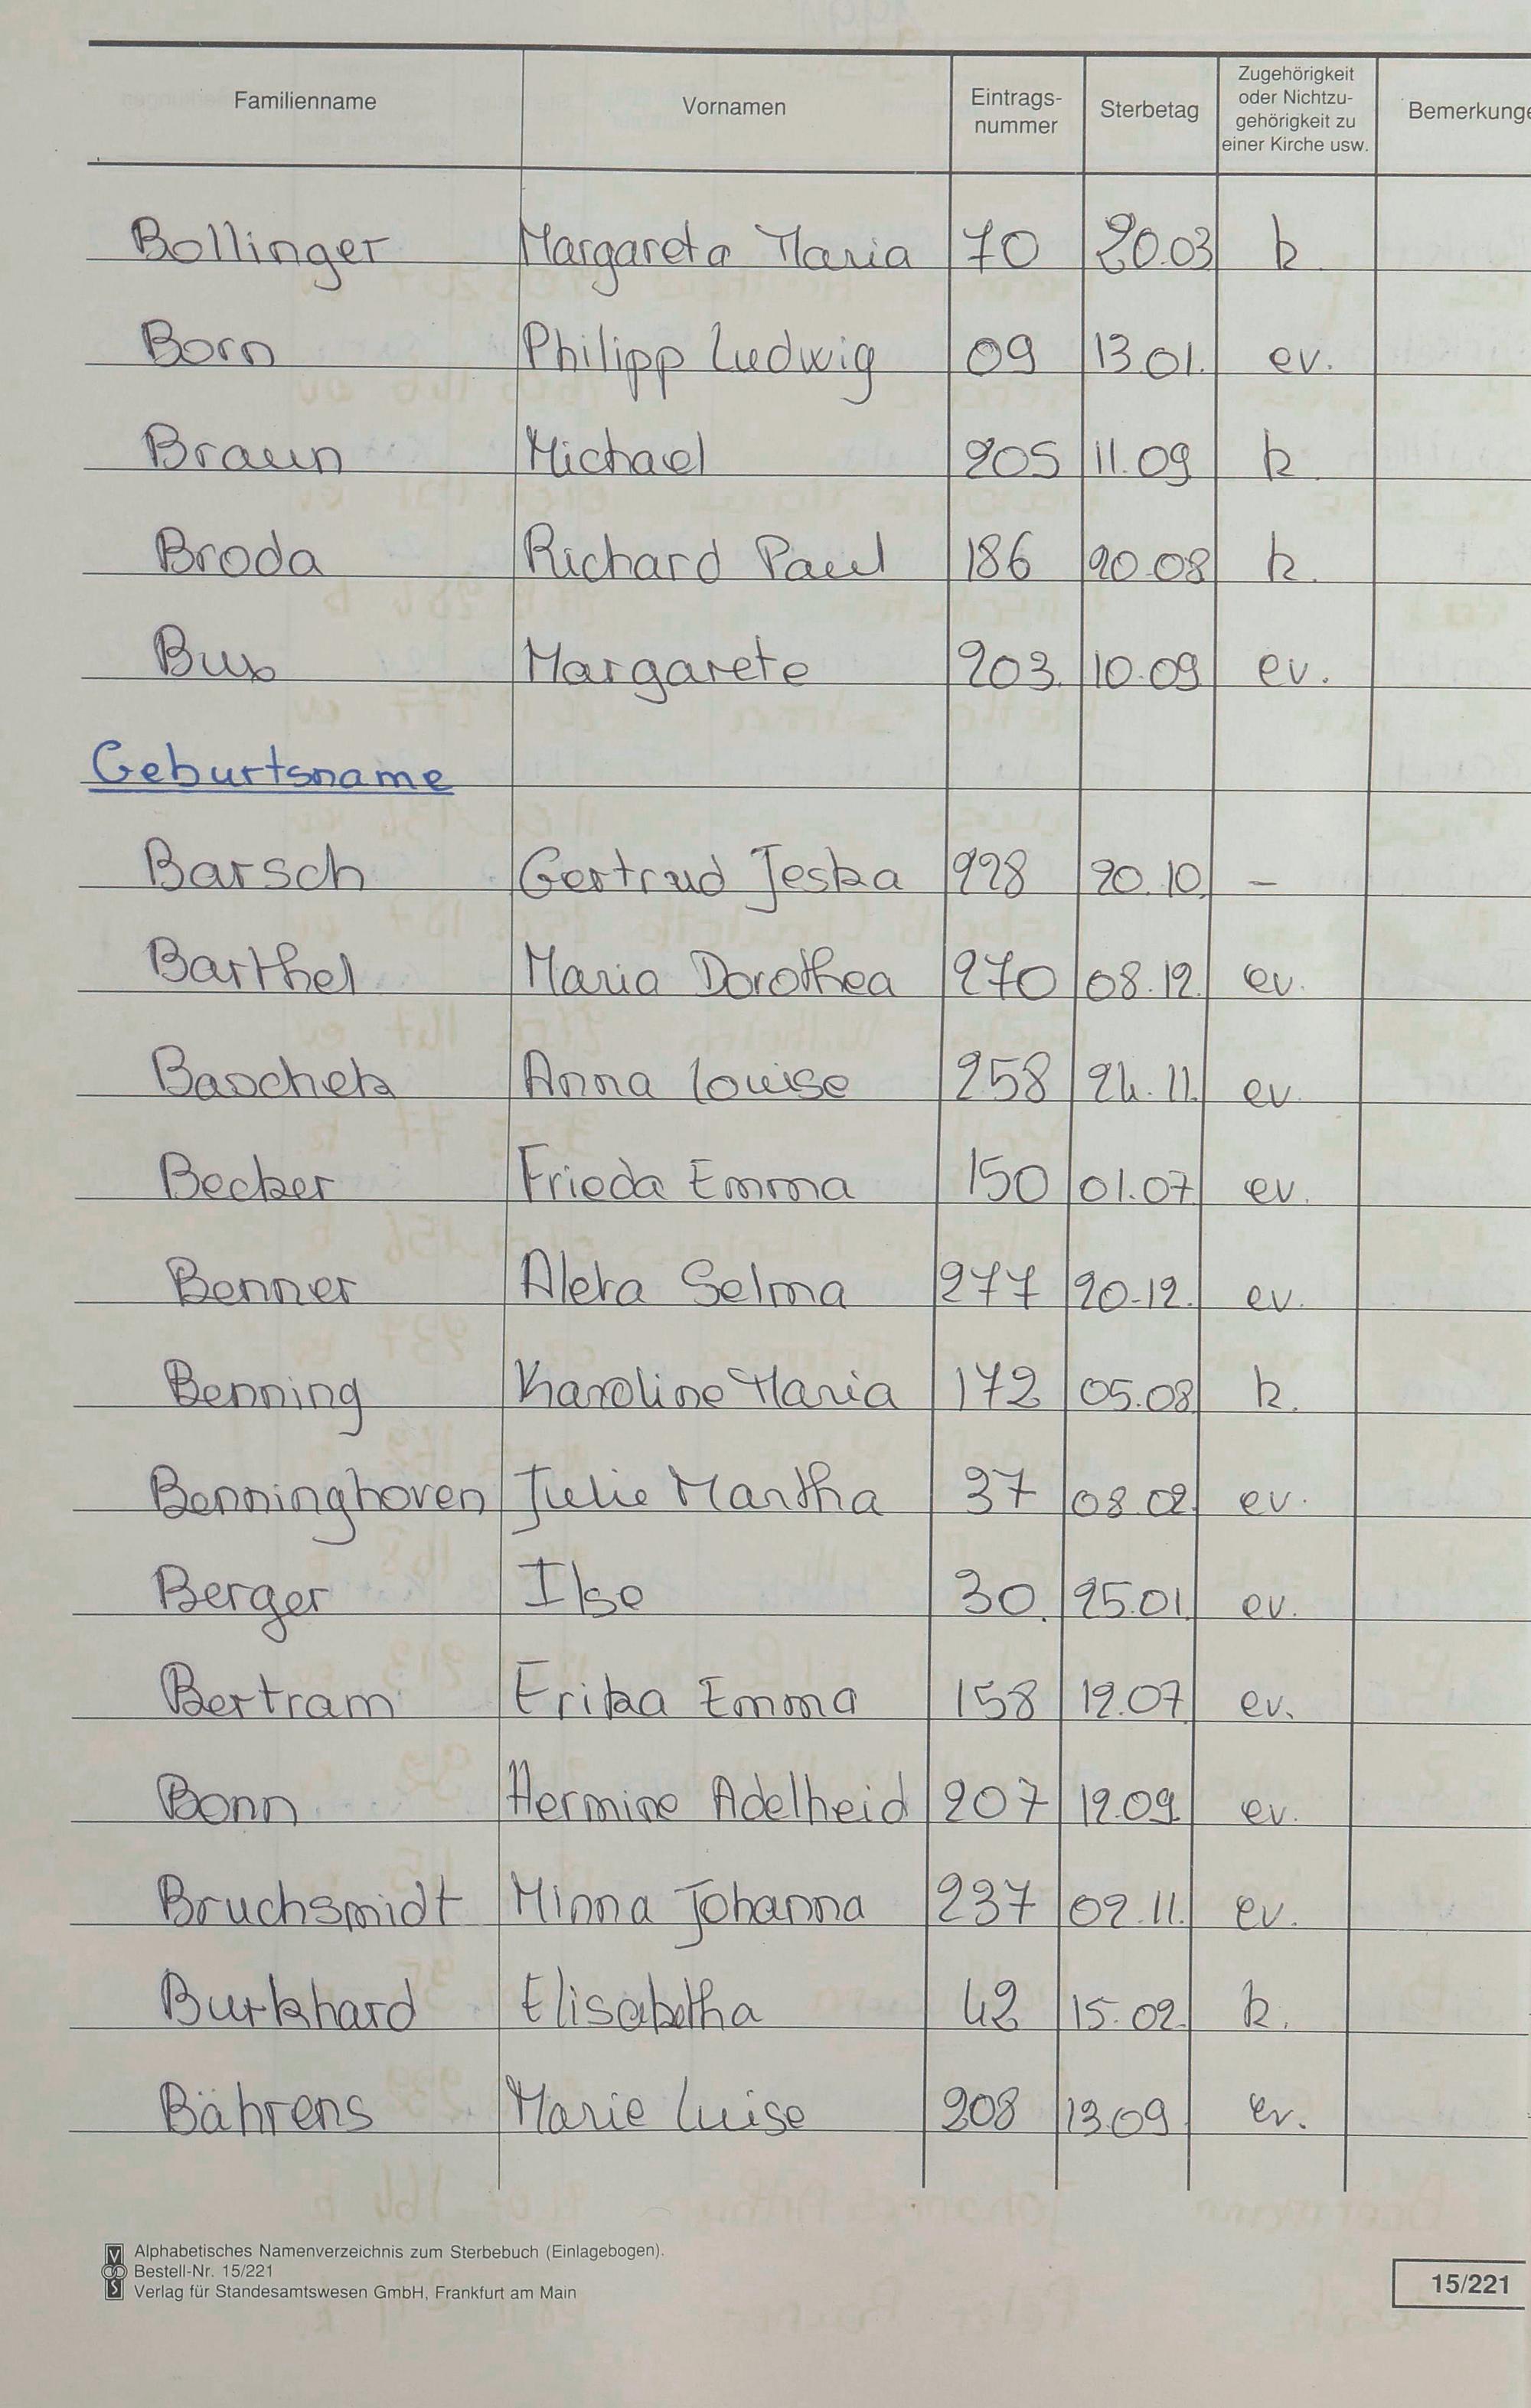 Familienname Vornamen Eintrags-nummer Sterbetag Zugehörigkeit oder Nichtzu-gehörigkeit zu einer Kirche usw. Bemerkunge
Bollinger Margareta Maria 70 20.03 k.
Born Philipp Ludwig 09 13.01. ev.
Braun Michael 205 11.09 k.
Broda Richard Paul 186 20.08 k.
Bux Margarete 203. 10.09 ev.
Geburtsname
Barsch Gertrud Jeska 228 20.10. –
Barthel Maria Dorothea 270 08.12. ev.
Baschek Anna Louise 258 24.11. ev.
Becker Frieda Emma 150 01.07 ev.
Benner Aleka Selma 277 20.12. ev.
Benning Karoline Maria 172 05.08 k.
Benninghoven Julie Martha 37 08.02. ev.
Berger Ilse 30. 25.01. ev.
Bertram Erika Emma 158 12.07 ev.
Bonn Hermine Adelheid 207 12.09 ev.
Bruchsmidt Minna Johanna 237 02.11. ev.
Burkhard Elisabetha 42 15.02. k.
Bährens Marie Luise 208 13.09 ev.
Alphabetisches Namenverzeichnis zum Sterbebuch (Einlagebogen).
Bestell-Nr. 15/221
Verlag für Standesamtswesen GmbH, Frankfurt am Main
15/221